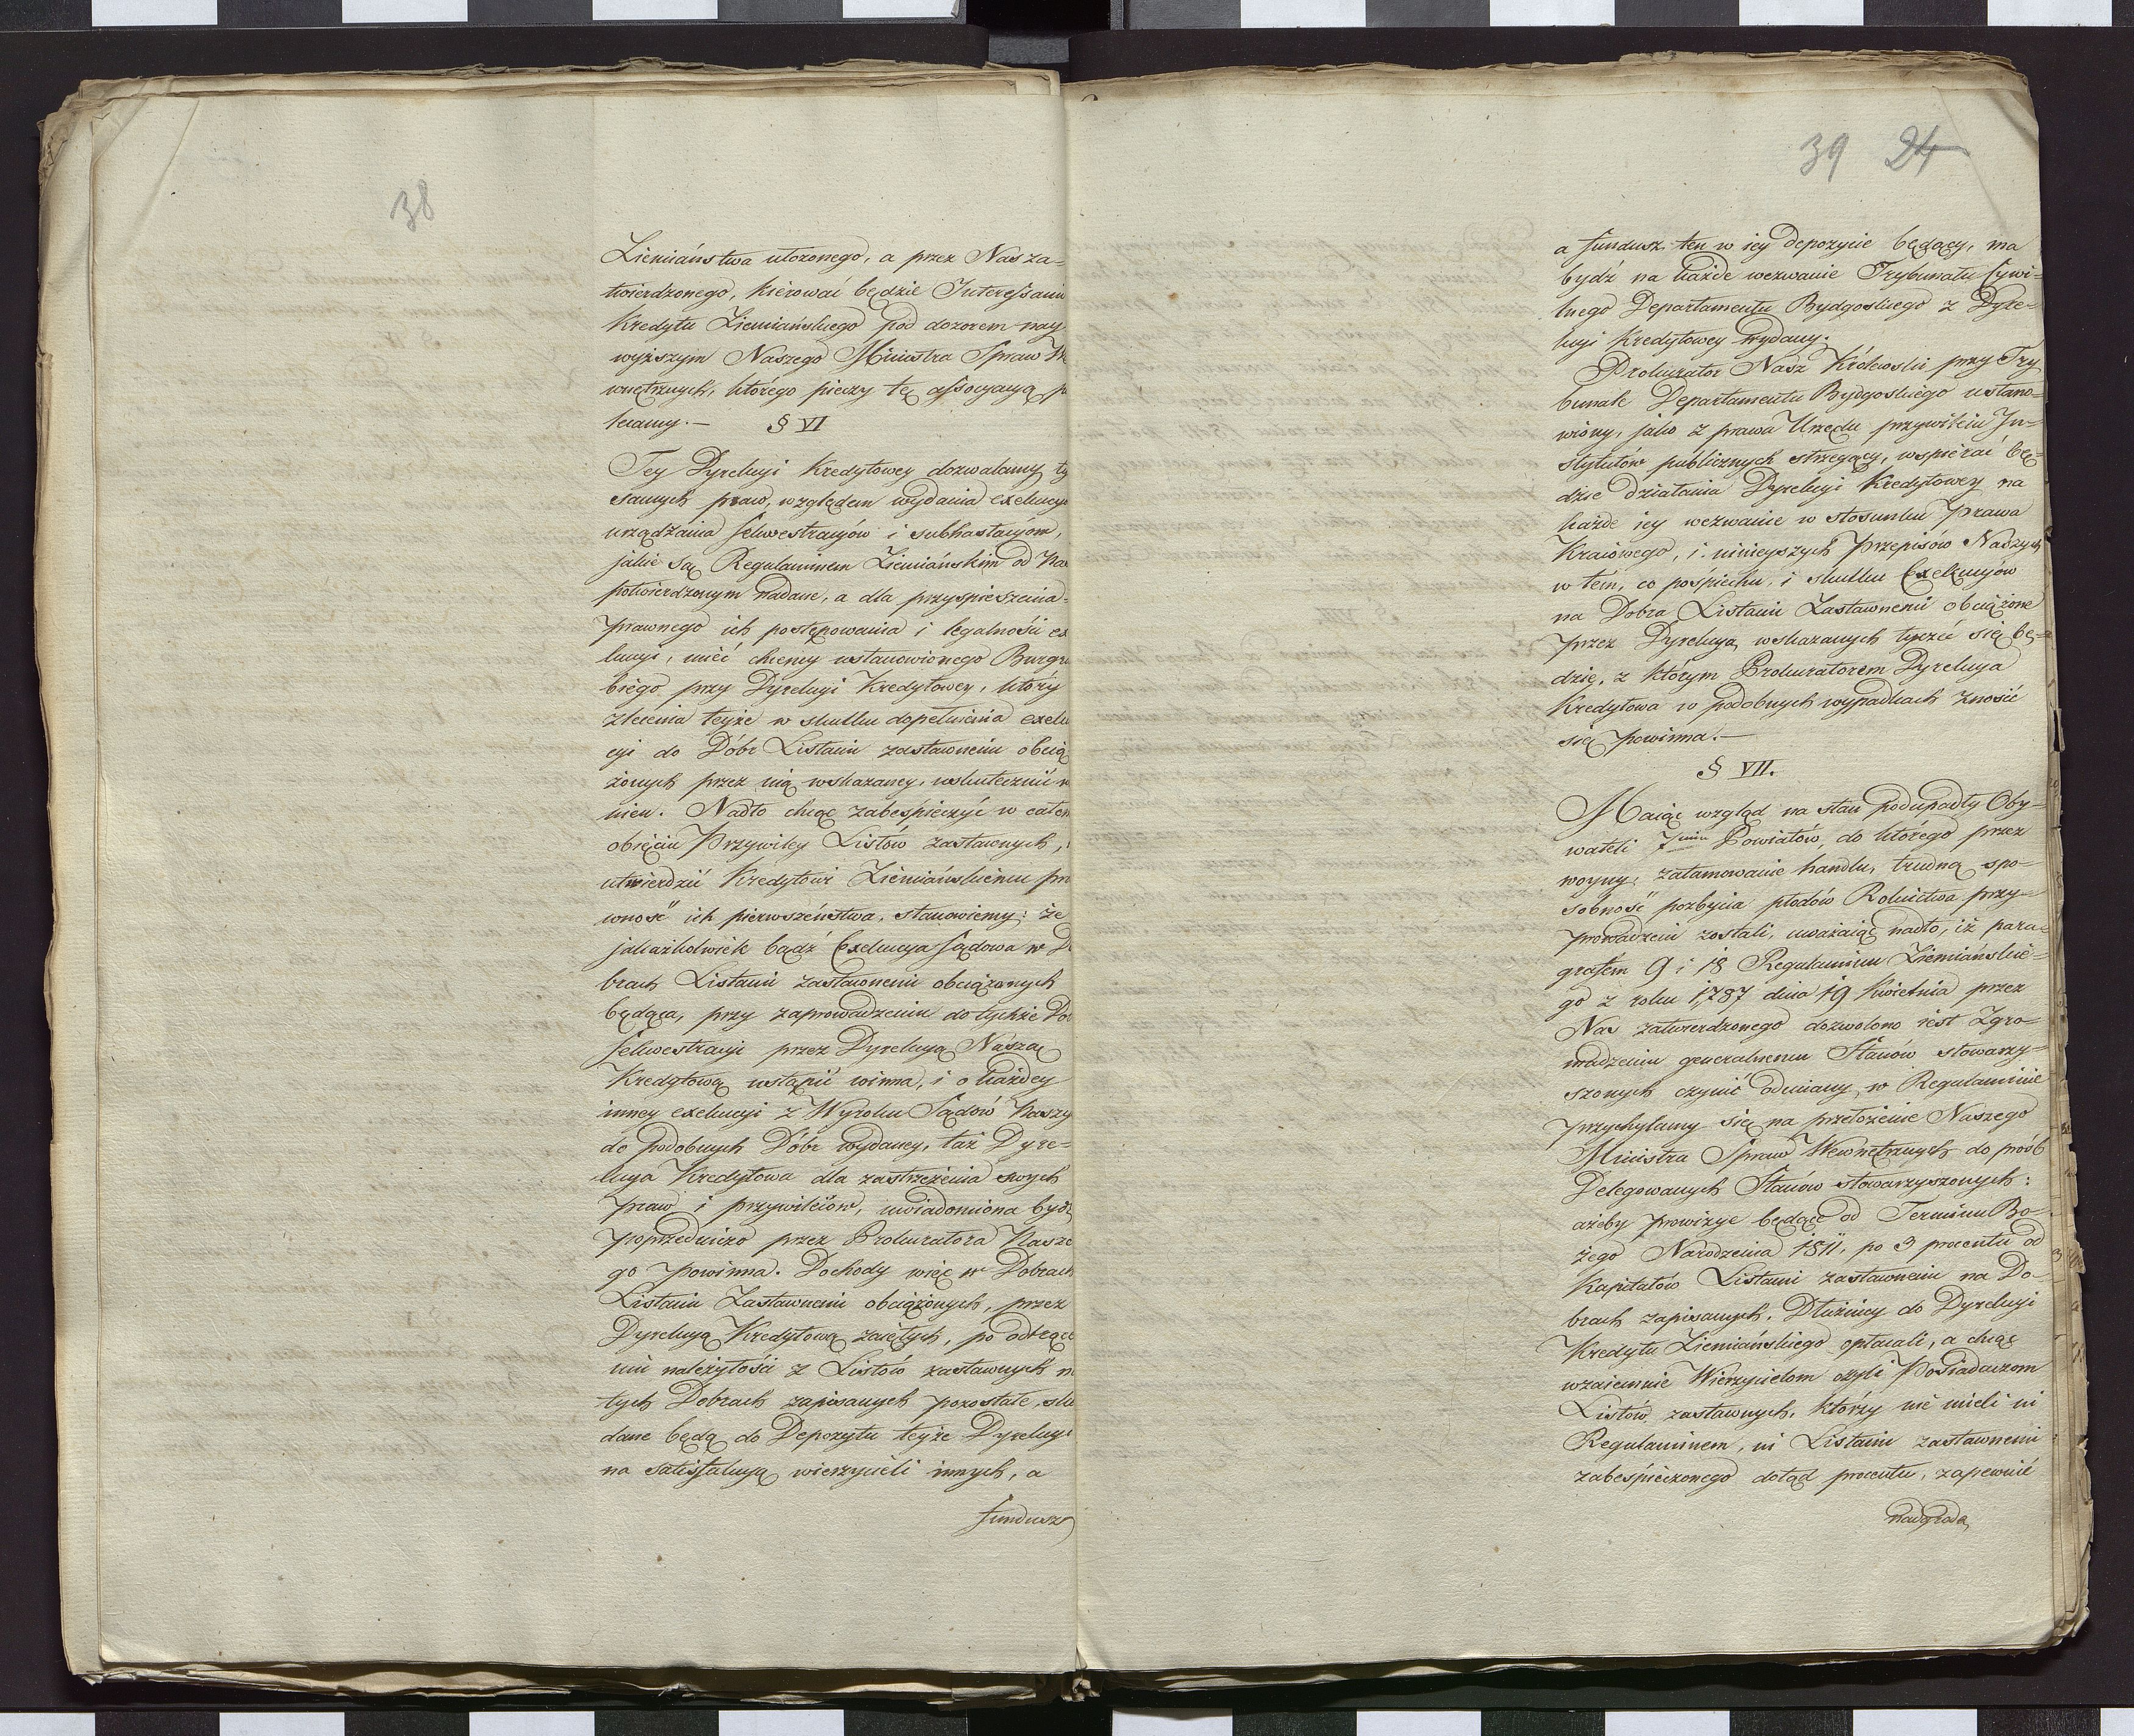 38
Ziemiaństwa ułożonego, a przez Nas za=
twierdzonego, kierować będzie Interessami
Kredytu Ziemiańskiego pod dozorem nay
wyższym Naszego Ministra Spraw We
wnętrznych, którego pieczy tę assocyacyą p
lecamy.—
§ VI
Tey Dyrekcyi Kredytowey dozwalamy ty
samych praw, względem wydania exekucyi
urządzania sekwestracyów i subhastacyom,
jakie są Regulaminem Ziemiańskim od Nas
potwierdzonym nadane, a dla przyspieszenia=
prawnego ich postępowania i legalności ex
kucyi, mieć chcemy ustanowionego Burgra
biego przy Dyrekcyi Kredytowey, który
zlecenia teyże w skutku dopełnienia exeku
cyi do Dóbr Listami zastawnemi obcią
żonych przez nią wskazaney, uskutecznić
nien. Nadto chcąc zabeśpieczyć w całem
obięciu Przywiley Listów zastawnych,
utwierdzić Kredytowi Ziemiańskiemu pe
wność ich pierwszeństwa, stanowiemy: że
jakażkolwiek bądź Exekucya sądowa w Do
brach Listami zastawnemi obciążonych
będąca, przy zaprowadzeniu do tychże Dóbr
sekwestracyi przez Dyrekcyą Naszą
Kredytową ustąpić winna, i o każdey
inney exekucyi z Wyroku Sądów Naszy
do podobnych Dóbr wydaney, taż Dyre=
kcya Kredytowa dla zastrzeżenia swych
praw i przywileiów, uwiadomiona bydź
poprzedniczo przez Prokuratora Nasze
go powinna. Dochody więc w Dobrach
Listami Zastawnemi obciążonych, przez
Dyrekcyą Kredytową zaiętych, po odtrące
niu należytości z Listów zastawnych n
tych Dobrach zapisanych pozostałe, skła
dane będą do Depozytu teyże Dyrekcyi
na satisfakcyą wierzycieli innych, a
fundusz
39 24
a fundusz ten w iey depozycie będący, ma
bydź na każde wezwanie Trybunału Cywi=
lnego Departamentu Bydgoskiego z Dyre=
kcyi Kredytowey wydany.
Prokurator Nasz Królewski przy Try
bunale Departamentu Bydgoskiego ustano=
wiony, jako z prawa Urzędu przywileiu In=
stytutów publicznych strzegący, wspierać bę=
dzie działania Dyrekcyi Kredytowey na
każde iey wezwanie w stosunku Prawa
Kraiowego, i ninieyszych Przepisów Naszych
w tém, co pośpiechu, i skutku Exekucyów
na Dobra Listami Zastawnemi obciążone
przez Dyrekcyą wskazanych tyczeć się bę=
dzie, z którym Prokuratorem Dyrekcya
Kredytowa w podobnych wypadkach znosić
się powinna.—
§ VII.
Maiąc wzgląd na stan podupadły Oby=
wateli 7miu Powiatów, do którego przez
woyny, zatamowanie handlu, trudną spo=
sobność pozbycia płodów Rolnictwa przy=
prowadzeni zostali, uważaiąc nadto, iż para=
grafem 9 i 18 Regulaminu Ziemiańskie=
go z roku 1787 dnia 19 Kwietnia przez
Nas zatwierdzonego dozwolono iest Zgro=
madzeniu generalnemu Stanów stowarzy=
szonych czynić odmiany, w Regulaminie
przychylamy się na przełożenie Naszego
Ministra Spraw Wewnętrznych do prośb
Delegowanych Stanów stowarzyszonych:
ażeby prowizye będące od Terminu Bo=
żego Narodzenia 1811, po 3 procentu od
Kapitałów Listami zastawnemi na Do=
brach zapisanych, Dłużnicy do Dyrekcyi
Kredytu Ziemiańskiego opłacali, a chcąc
wzaiemnie Wierzycielom czyli Posiadaczom
Listów zastawnych, którzy nie mieli ni
Regulaminem, ni Listami zastawnemi
zabeśpieczonego dotąd procentu, zapewnić
nadgrodę